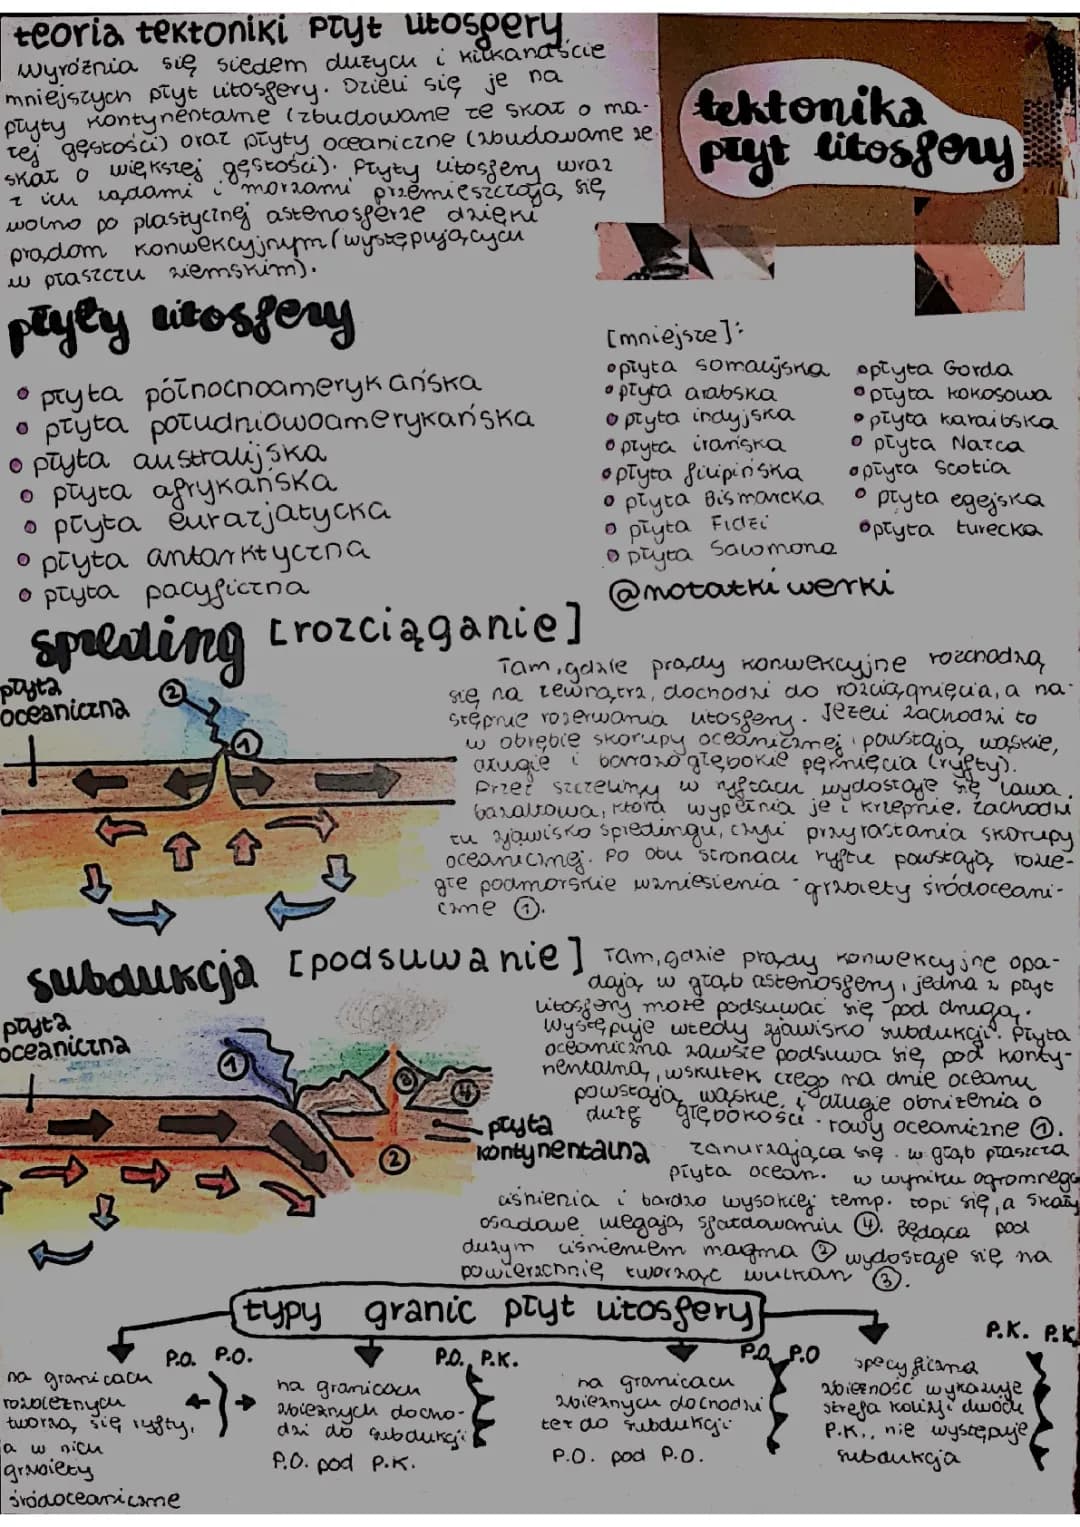 teoria tektoniki płyt litosfery
Wyróżnia się siedem dużych i kilkanaście
mniejszych płyt litosfery. Dzieli się je na
płyty kontynentalne (zbudowane ze skał o ma-
łej gęstości) oraz płyty oceaniczne (zbudowane ze
skał o większej gęstości). Płyty litosfery wraz
z ich lądami i morzami przemieszczają się
wolno po plastycznej astenosferze dzięki
prądom konwekcyjnym (występujących
w płaszczu ziemskim).
tektonika
płyt litosfery
płyty litosfery
• płyta północnoamerykańska
• płyta południowoamerykańska
• płyta australijska
• płyta afrykańska
• płyta eurazjatycka
• płyta antarktyczna
• płyta pacyficzna
[mniejsze]:
• płyta somalijska
• płyta arabska
• płyta indyjska
• płyta irańska
• płyta filipińska
• płyta Bismarcka
• płyta Fidżi
• płyta Salomona
• płyta Gorda
• płyta kokosowa
• płyta karaibska
• płyta Nazca
• płyta Scotia
• płyta egejska
• płyta turecka
@notatki werki
spreding [rozciąganie]
płyta
oceaniczna
2
1
Tam, gdzie prądy konwekcyjne rozchodzą
się na zewnątrz, dochodzi do rozciągnięcia, a na-
stępnie rozerwania litosfery. Jeżeli zachodzi to
w obrębie skorupy oceanicznej, powstają wąskie,
długie i bardzo głębokie pęknięcia (ryfty).
Przez szczeliny w ryftach wydostaje się lawa
bazaltowa, która wypełnia je i krzepnie. Zachodzi
tu zjawisko spredingu, czyli przyrastania skorupy
oceanicznej. Po obu stronach ryftu powstają rozle-
głe podmorskie wzniesienia - grzbiety śródoceani-
czne ①.
subdukcja [podsuwanie]
płyta
oceaniczna
1
3
4
2
płyta
kontynentalna
Tam, gdzie prądy konwekcyjne opa-
dają w głąb astenosfery, jedna z płyt
litosfery może podsuwać się pod drugą.
Występuje wtedy zjawisko subdukcji. Płyta
oceaniczna zawsze podsuwa się pod konty-
nentalną, wskutek czego na dnie oceanu
powstają wąskie i długie obniżenia o
dużej głębokości - rowy oceaniczne ①.
zanurzająca się w głąb płaszcza
płyta ocean. w wyniku ogromnego
ciśnienia i bardzo wysokiej temp. topi się, a skały
osadowe ulegają sfałdowaniu ④. Będąca pod
dużym ciśnieniem magma ② wydostaje się na
powierzchnię tworząc wulkan ③.
typy granic płyt litosfery
P.O. P.O.
na granicach
rozbieżnych
tworzą się ryfty,
a w nich
grzbiety
śródoceaniczne
P.O. P.K.
na granicach
zbieżnych docho-
dzi do subdukcji
P.O. pod P.K.
P.O. P.O
na granicach
zbieżnych dochodzi
też do subdukcji
P.O. pod P.O.
P.K. P.K
specyficzna
zbieżność wykazuje
strefa kolizji dwóch
P.K., nie występuje
subdukcja